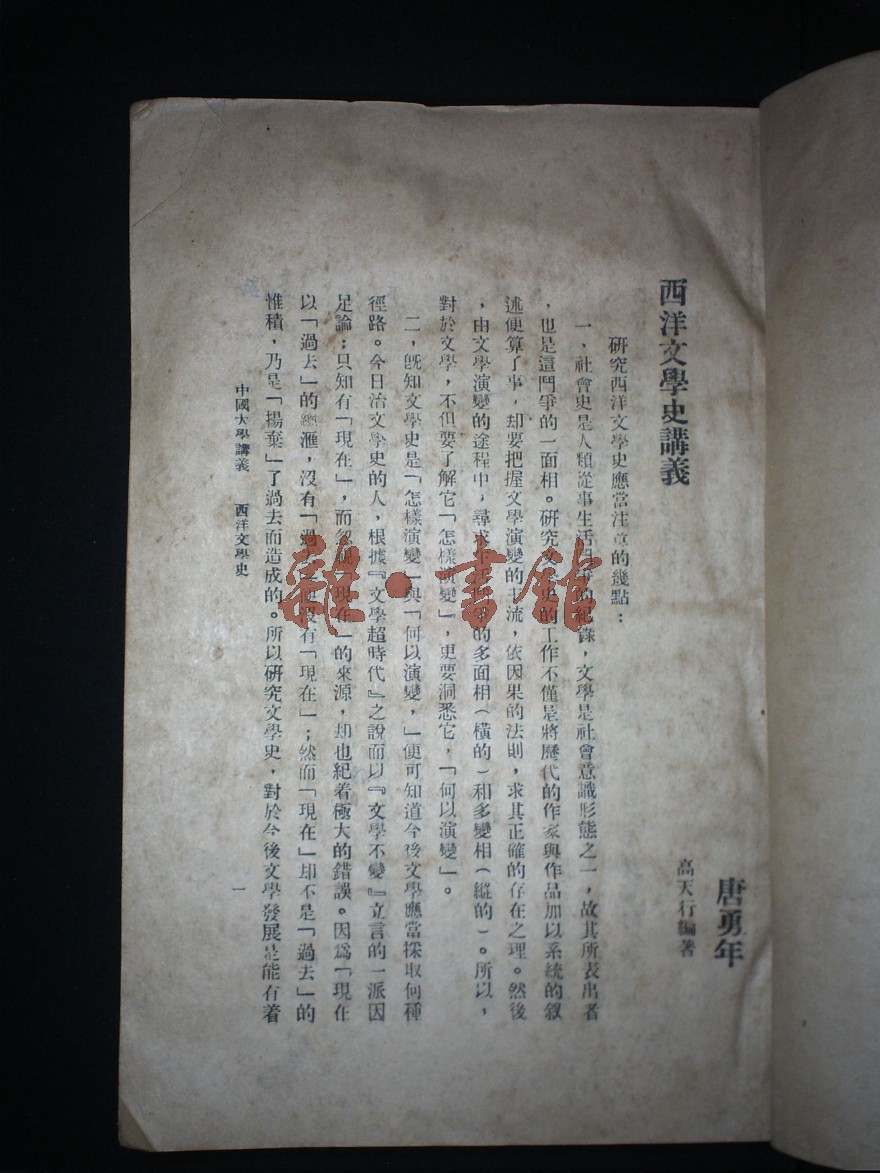 西洋文學史講義
唐勇年
高天行編著
研究西洋文學史應當注意的幾點：
一、社會史是人類從事生活鬥爭的紀錄，文學是社會意識形態之一，故其所表出者
，也是這鬥爭的一面相。研究文學史的工作不僅是將歷代的作家與作品加以系統的叙
述便算了事，却要把握文學演變的主流，依因果的法則，求其正確的存在之理。然後
，由文學演變的途程中，尋求生活鬥爭的多面相（橫的）和多變相（縱的）。所以，
對於文學，不但要了解它「怎樣演變」，更要洞悉它，「何以演變」。
二，旣知文學史是「怎樣演變」與「何以演變，」便可知道今後文學應當採取何種
徑路。今日治文學史的人，根據『文學超時代』之說而以『文學不變』立言的一派因
足論；只知有「現在」，而忽視「現在」的來源，却也紀着極大的錯誤。因爲「現在
以「過去」的總滙，沒有「過去」便沒有「現在」；然而「現在」却不是「過去」的
惟積，乃是「揚棄」了過去而造成的。所以研究文學史，對於今後文學發展是能有着
中國大學講義　西洋文學史
一
雜·書館